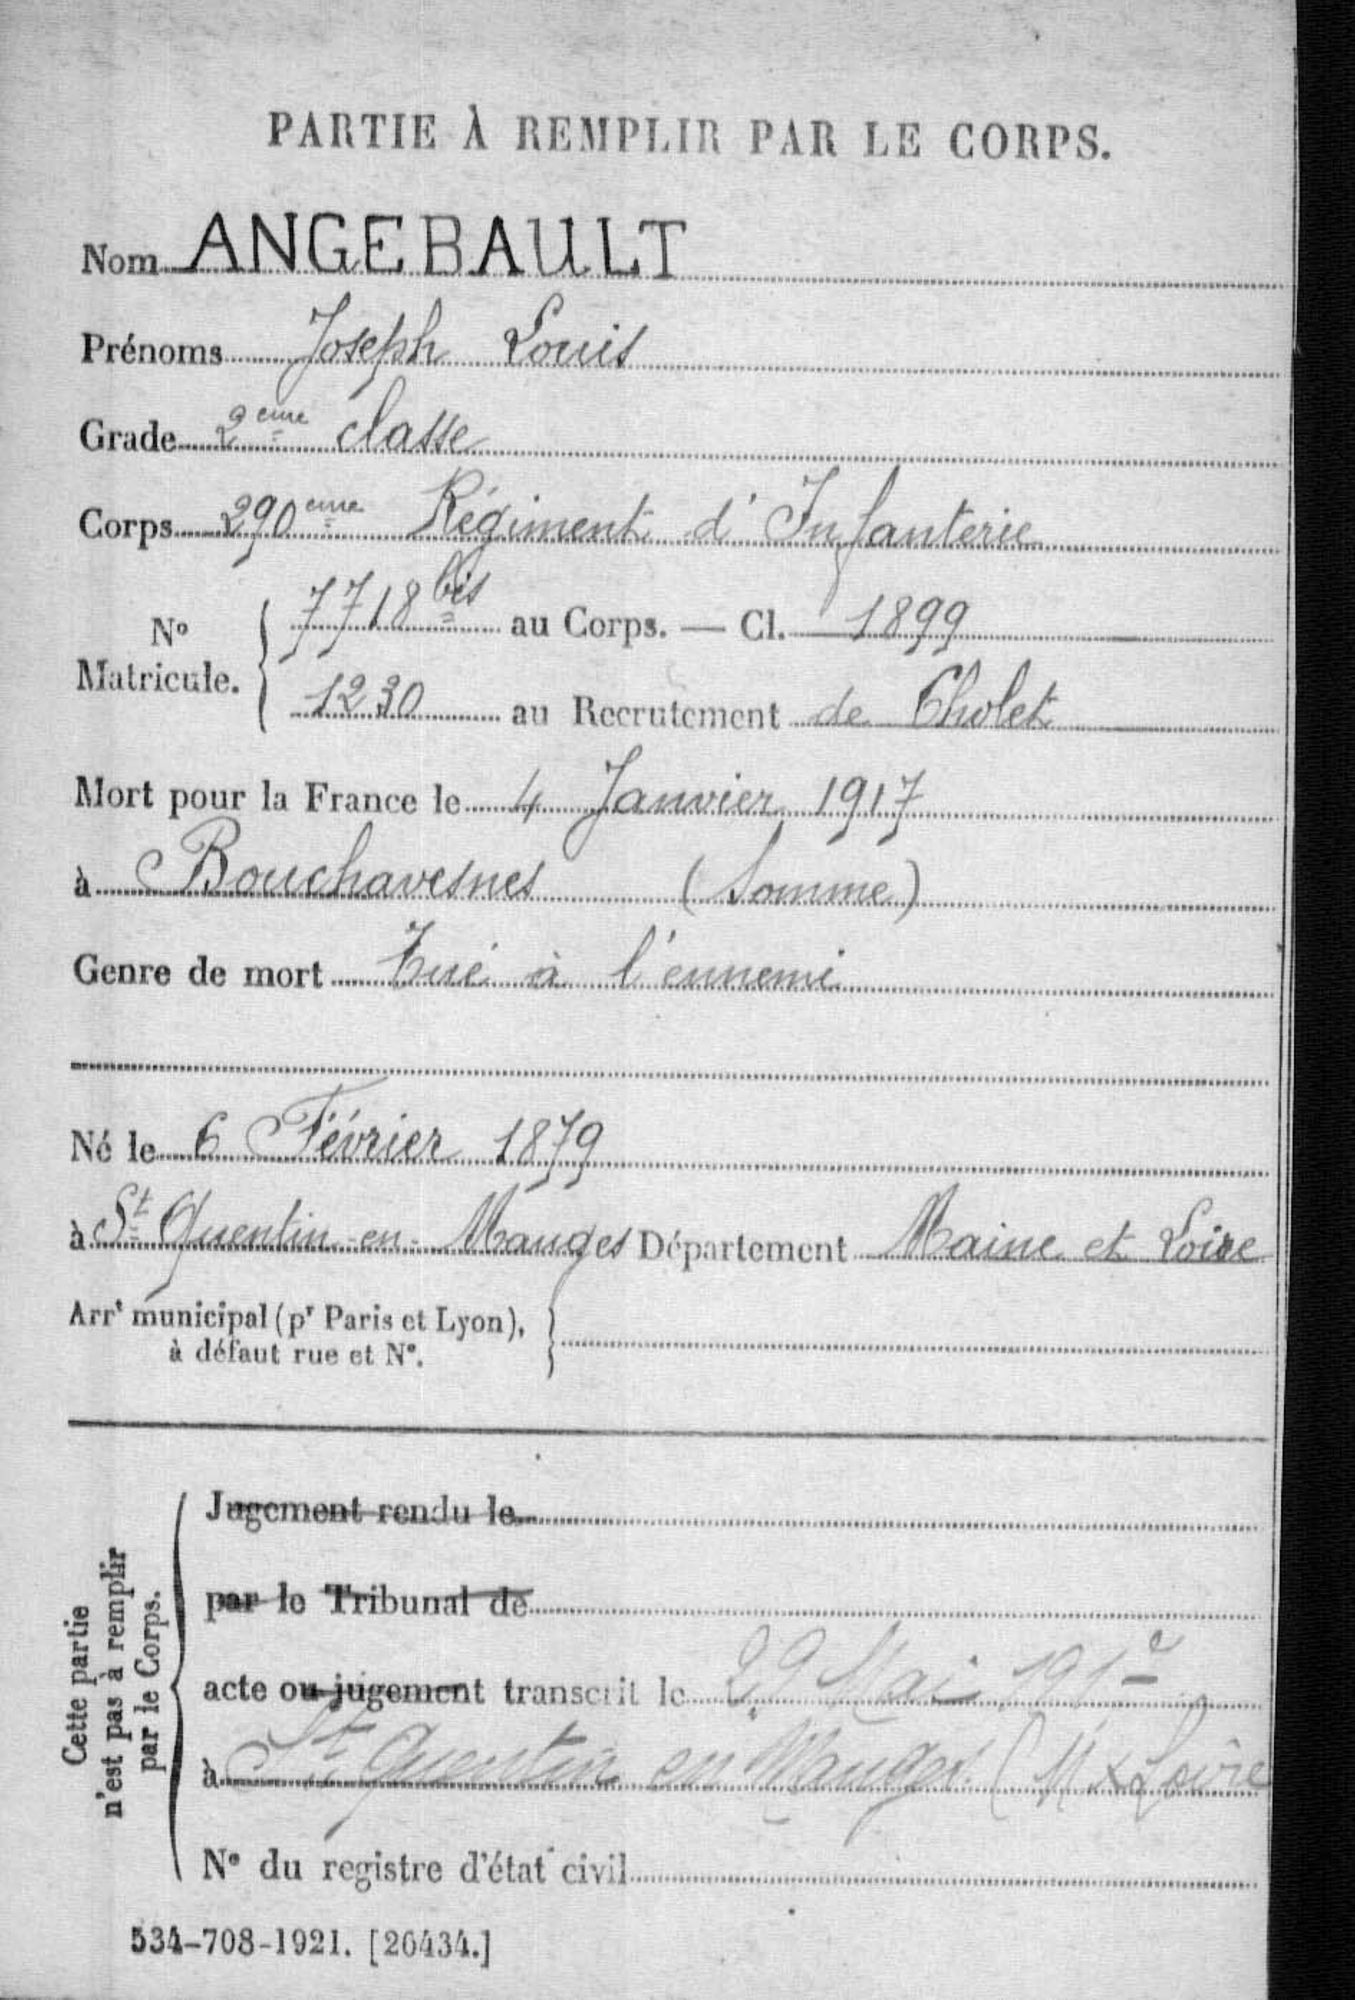 PARTIE À REMPLIR PAR LE CORPS.
Nom ANGEBAULT
Prénoms Joseph Louis
Grade 2eme classe
Corps 290eme Régiment d'Infanterie
N° Matricule. { 7718 bis au Corps. — Cl. 1899
1230 au Recrutement de Cholet
Mort pour la France le 4 Janvier 1917
à Bouchavesnes (Somme)
Genre de mort Tué à l'ennemi
Né le 6 Février 1879
à St Quentin-en-Mauges Département Maine et Loire
Arrt municipal (pr Paris et Lyon), }
à défaut rue et N°.
Cette partie
n'est pas à remplir
par le Corps.
Jugement rendu le
par le Tribunal de
acte ou jugement transcrit le 29 Mai
à St Quentin en Mauges (M & Loire
N° du registre d'état civil
534-708-1921. [26434.]